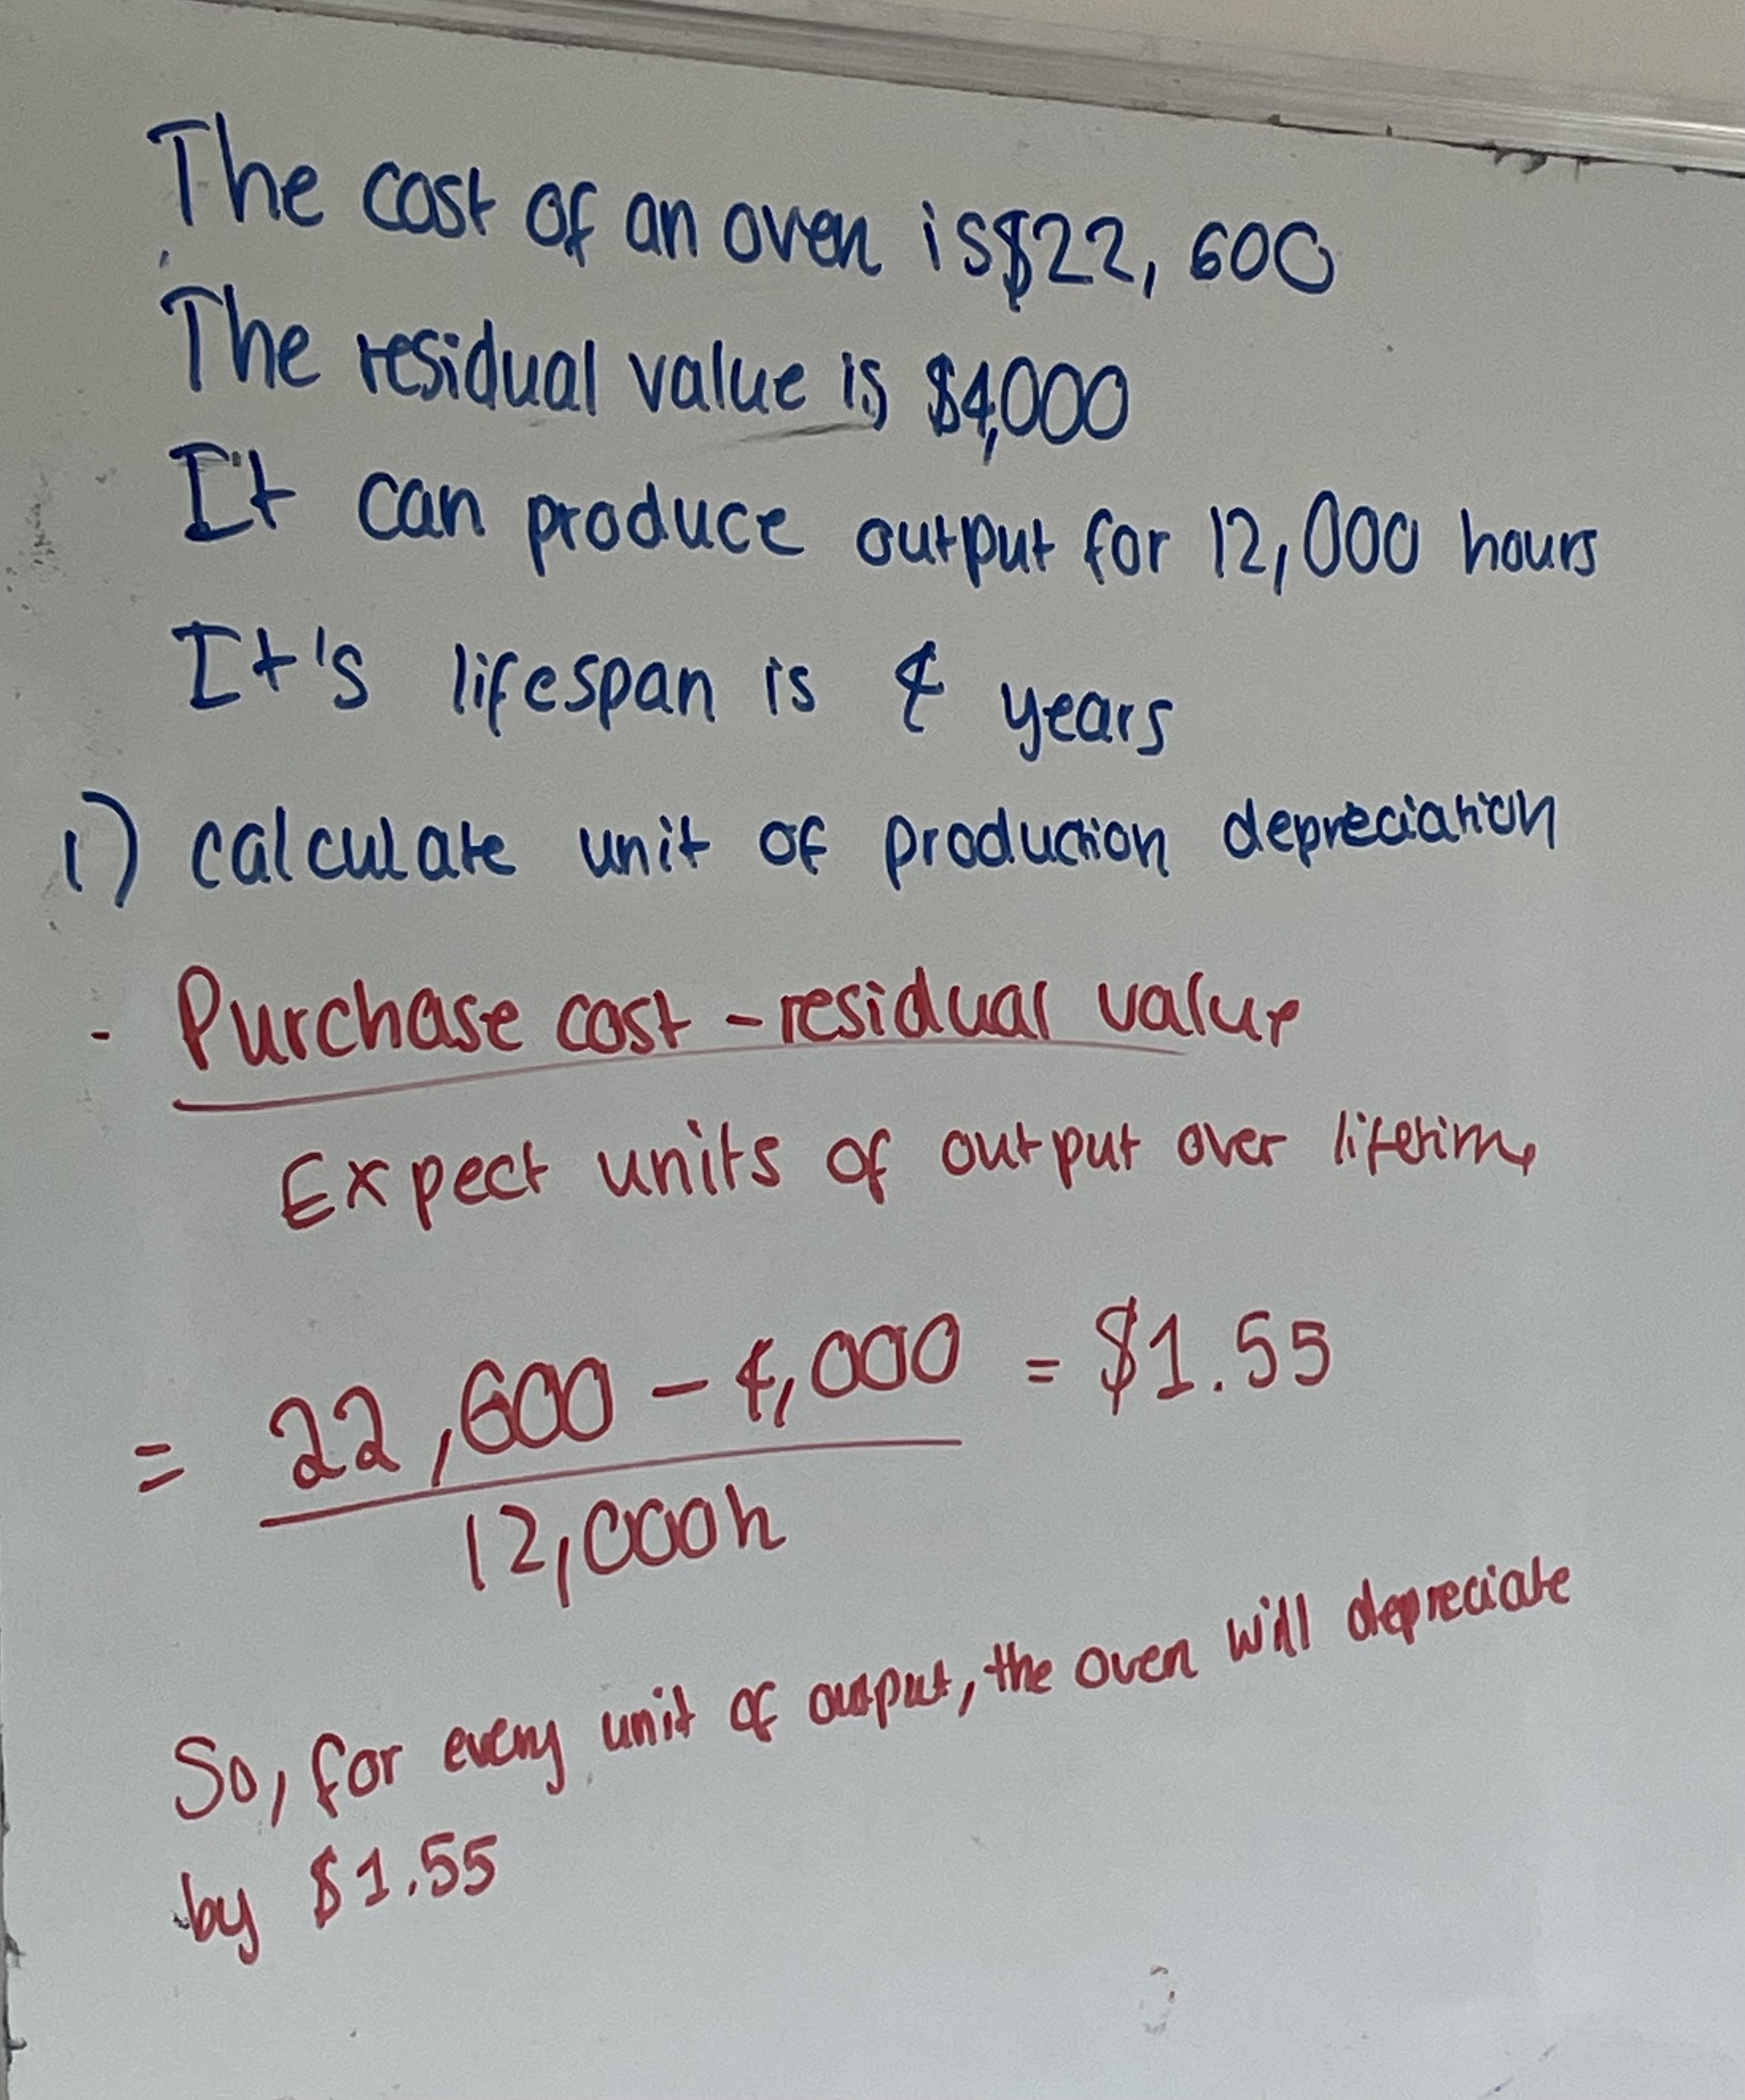 The cost of an oven is $22,600
The residual value is $4,000
It can produce output for 12,000 hours
It's lifespan is 4 years
1) calculate unit of production depreciation
- Purchase cost - residual value
Expect units of output over lifetime
= 22,600 - 4,000 = $1.55
12,000h
So, for every unit of output, the oven will depreciate
by $1.55